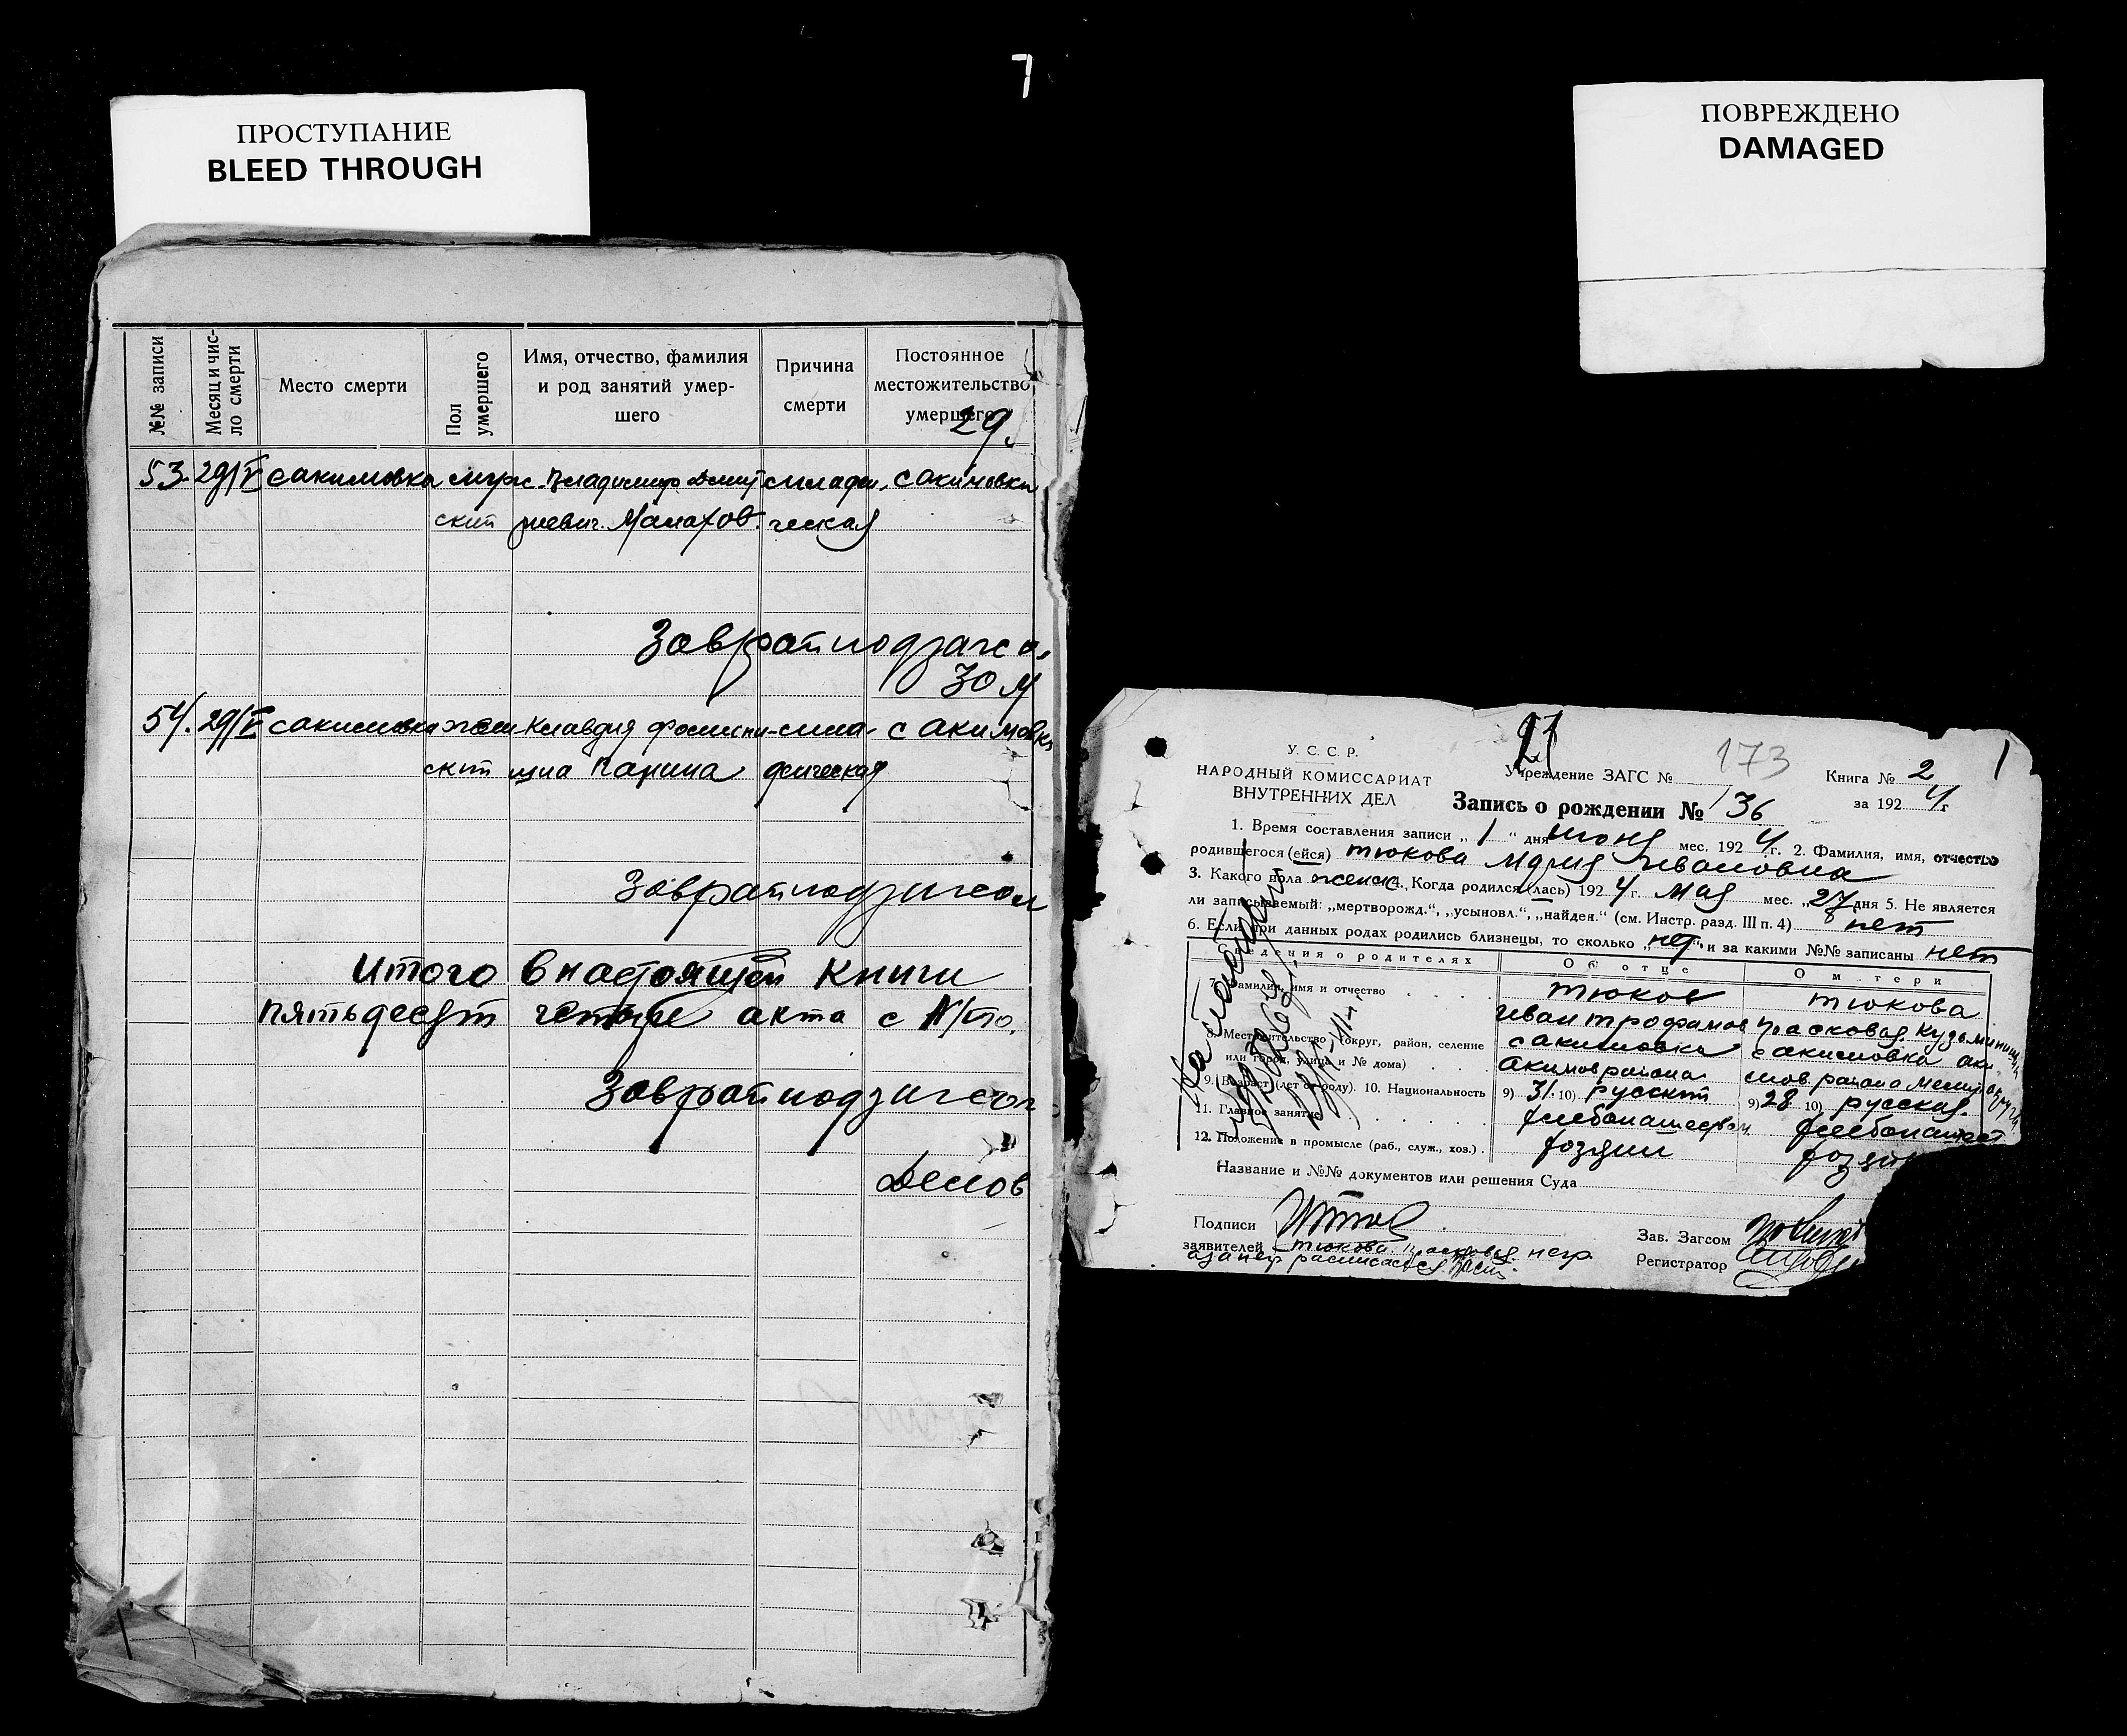 7
ПРОСТУПАНИЕ
BLEED THROUGH
ПОВРЕЖДЕНО
DAMAGED
№№ записи
Месяц и чис-
ло смерти
Место смерти
Пол
умершего
Имя, отчество, фамилия
и род занятий умер-
шего
Причина
смерти
Постоянное
местожительство
умершего
29.
53. 29/V с акимовка муж. Владимир Дмит с акимовки
ский риевич. Малахов. ческая
54. 29/V с акимовка жен Клавдия с акимовка
ский
Итого в настоящей книги
пятьдесят четыре акта с
Демов
У. С. С. Р.
НАРОДНЫЙ КОМИССАРИАТ
ВНУТРЕННИХ ДЕЛ
Учреждение ЗАГС № 173
Книга № 2
за 1924 г
1
Запись о рождении № 136
1. Время составления записи „ 1 “ дня июня мес. 1924 г. 2. Фамилия, имя, отчество
родившегося (ейся) Тюкова Мария Ивановна
3. Какого пола женс. 4. Когда родился (лась) 1924 г. мая мес. „ 27 дня 5. Не является
ли записываемый: „мертворожд.“, „усыновл.“, „найден.“ (см. Инстр. разд. III п. 4) нет
6. Если при данных родах родились близнецы, то сколько „нет“ и за какими №№ записаны нет
Сведения о родителях
Об отце
О матери
7. Фамилия, имя и отчество
Тюков
Тюкова
Иван Трофимов
Прасковья Кузьминишн
8. Местожительство (округ, район, селение
или город, улица и № дома)
с акимовка
с акимовка аки
Акимов района
мов. района
9. Возраст (лет от роду). 10. Национальность
9) 31. 10) русский
9) 28 10) русская.
11. Главное занятие
хлебопашеством
хлебопашест
12. Положение в промысле (раб., служ., хоз.)
хозяин
Название и №№ документов или решения Суда
Подписи
заявителей
Тюкова. Прасковья негр
а за нее расписался
Зав. Загсом
Регистратор